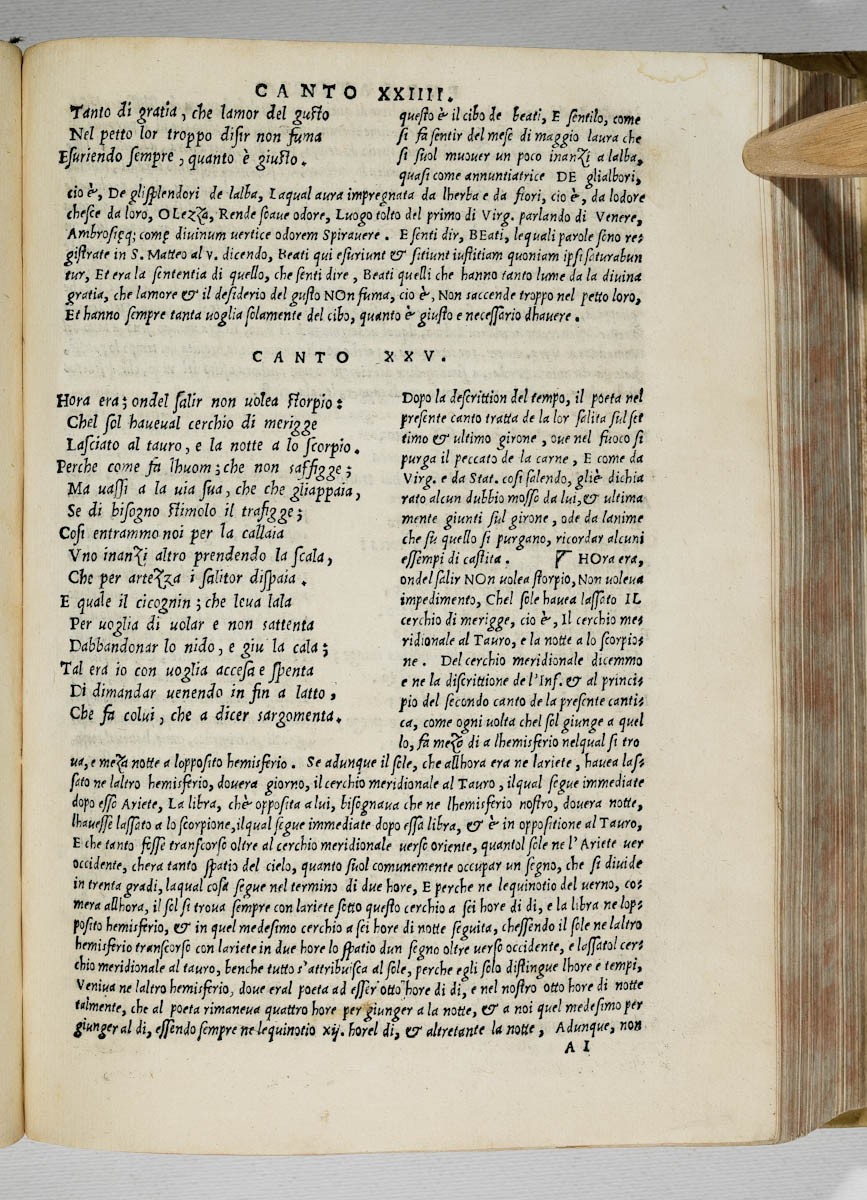 CANTO XXIIII.
Tanto di gratia, che lamor del gusto
Nel petto lor troppo disir non fuma
Esuriendo sempre, quanto è giusto.
questo è il cibo de beati, E sentilo, come
si fa sentir del mese di maggio laura che
si suol muover un poco inanzi a lalba,
quasi come annuntiatrice DE glialbori,
cio è, De glisplendori de lalba, Laqual aura impregnata da lherba e da fiori, cio è, da lodore
chesce da loro, OLezza, Rende soave odore, Luogo tolto del primo di Virg. parlando di Venere,
Ambrosięq; comę divinum vertice odorem Spirauere. E senti dir, BEati, lequali parole sono re⸗
gistrate in S. Matteo al v. dicendo, Beati qui esuriunt & sitiunt iustitiam quoniam ipsi saturabun
tur, Et era la sententia di quello, che senti dire, Beati quelli che hanno tanto lume da la divina
gratia, che lamore & il desiderio del gusto NOn fuma, cio è, Non saccende troppo nel petto loro,
Et hanno sempre tanta uoglia solamente del cibo, quanto è giusto e necessario dhauere.
CANTO XXV.
Hora era; ondel salir non uolea storpio:
Chel sol haueual cerchio di merigge
Lasciato al tauro, e la notte a lo scorpio.
Perche come fa lhuom; che non saffigge;
Ma uassi a la uia sua, che che gliappaia,
Se di bisogno stimolo il trafigge;
Cosi entrammo noi per la callaia
Vno inanzi altro prendendo la scala,
Che per artezza i salitor dispaia.
E quale il cicognin; che leua lala
Per uoglia di uolar e non sattenta
Dabbandonar lo nido, e giu la cala;
Tal era io con uoglia accesa e spenta
Di dimandar uenendo in fin a latto,
Che fa colui, che a dicer sargomenta.
Dopo la descrittion del tempo, il poeta nel
presente canto tratta de la lor salita sul set
timo & ultimo girone, oue nel fuoco si
purga il peccato de la carne, E come da
Virg. e da Stat. cosi salendo, gliè dichia
rato alcun dubbio mosso da lui, & ultima
mente giunti sul girone, ode da lanime
che su quello si purgano, ricordar alcuni
essempi di castita. HOra era,
ondel salir NOn uolea storpio, Non uoleua
impedimento, Chel sole hauea lassato IL
cerchio di merigge, cio è, Il cerchio me⸗
ridionale al Tauro, e la notte a lo scorpio⸗
ne. Del cerchio meridionale dicemmo
e ne la discrittione de l'Inf. & al princi⸗
pio del secondo canto de la presente canti⸗
ca, come ogni uolta chel sol giunge a quel
lo, fa mezo di a lhemisferio nelqual si tro
ua, e meza notte a lopposito hemisferio. Se adunque il sole, che allhora era ne lariete, hauea las⸗
sato ne laltro hemisferio, douera giorno, il cerchio meridionale al Tauro, ilqual segue immediate
dopo esso Ariete, La libra, chè opposita a lui, bisognaua che ne lhemisferio nostro, douera notte,
lhauesse lassato a lo scorpione, ilqual segue immediate dopo essa libra, & è in oppositione al Tauro,
E che tanto fosse transcorso oltre al cerchio meridionale uerso oriente, quantol sole ne l'Ariete uer
occidente, chera tanto spatio del cielo, quanto suol comunemente occupar un segno, che si diuide
in trenta gradi, laqual cosa segue nel termino di due hore, E perche ne lequinotio del uerno, co⸗
mera allhora, il sol si troua sempre con lariete sotto questo cerchio a sei hore di di, e la libra ne lop⸗
posito hemisferio, & in quel medesimo cerchio a sei hore di notte seguita, chessendo il sole ne laltro
hemisferio transcorso con lariete in due hore lo spatio dun segno oltre uerso occidente, e lassatol cer⸗
chio meridionale al tauro, benche tutto s'attribuisca al sole, perche egli solo distingue lhore e tempi,
Veniua ne laltro hemisferio, doue eral poeta ad esser otto hore di di, e nel nostro otto hore di notte
talmente, che al poeta rimaneua quattro hore per giunger a la notte, & a noi quel medesimo per
giunger al di, essendo sempre ne lequinotio xij. horel di, & altretante la notte, Adunque, non
A I